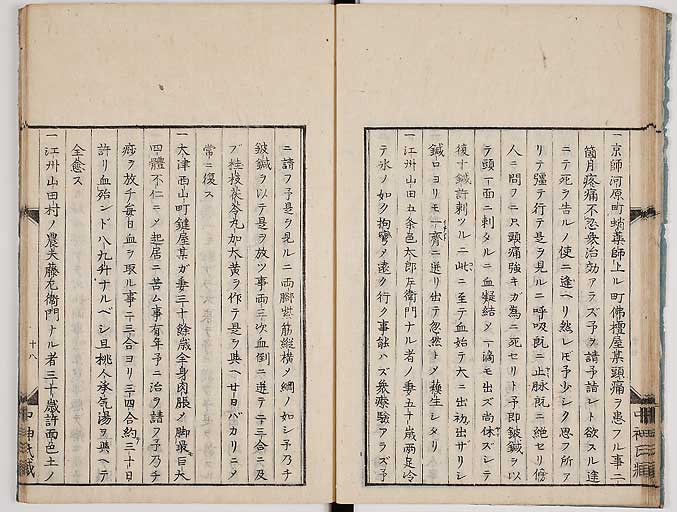 一京師河原町蛸藥師上ル町佛檀屋某頭痛ヲ患フル事二
箇月疼痛不忍衆治効アラズ予ヲ請予詣レト欲スル途
ニテ死ヲ告ルノ使ニ逢ヘリ然レモ予少シク思フ所ア
リテ彊テ行テ是ヲ見ルニ呼吸既ニ止脉既ニ絶セリ傍
人ニ問フニ只頭痛強キガ為ニ死セリト予即鈹鍼ヲ以
テ頭一面ニ刺タルニ血凝結メ一滴モ出ズ尚休ズシテ
復十鍼許刺ソルニ此ニ至テ血始テ大ニ出初出ザリシ
鍼口ヨリモ一齊ニ迸リ出テ忽然トメ穫生シタリ
一江州山田五条邑太郎左衛門ナル者ノ妻五十歳両足冷
テ氷ノ如ク拘攣メ遠ク行ク事能ハズ衆療驗アラズ予
ニ請フ予是ヲ見ルニ両脚紫筋縦横メ網ノ如シ予乃チ
鈹鍼ヲ以テ是ヲ放ツ事両三次血倒ニ迸テ二三合ニ及
ブ桂枝茯苓丸加大黄ヲ作テ是ヲ與ヘ廿日バカリニメ
常ニ復ス
一大津西山町鍵屋某ガ妻三十餘歳全身肉脹メ脚最巨大
四體不仁ニメ起居ニ苦ム事有年予ニ治ヲ請フ予乃チ
痧ヲ放チ毎日血ヲ取ル事二三合ヨリ三四合約三十日
許リ血殆ンド八九升ナルベシ且桃人承気湯ヲ與ヘテ
全愈ス
一江州山田村ノ農夫藤左衛門ナル者三十歳許面色土ノ
十八
中神氏藏